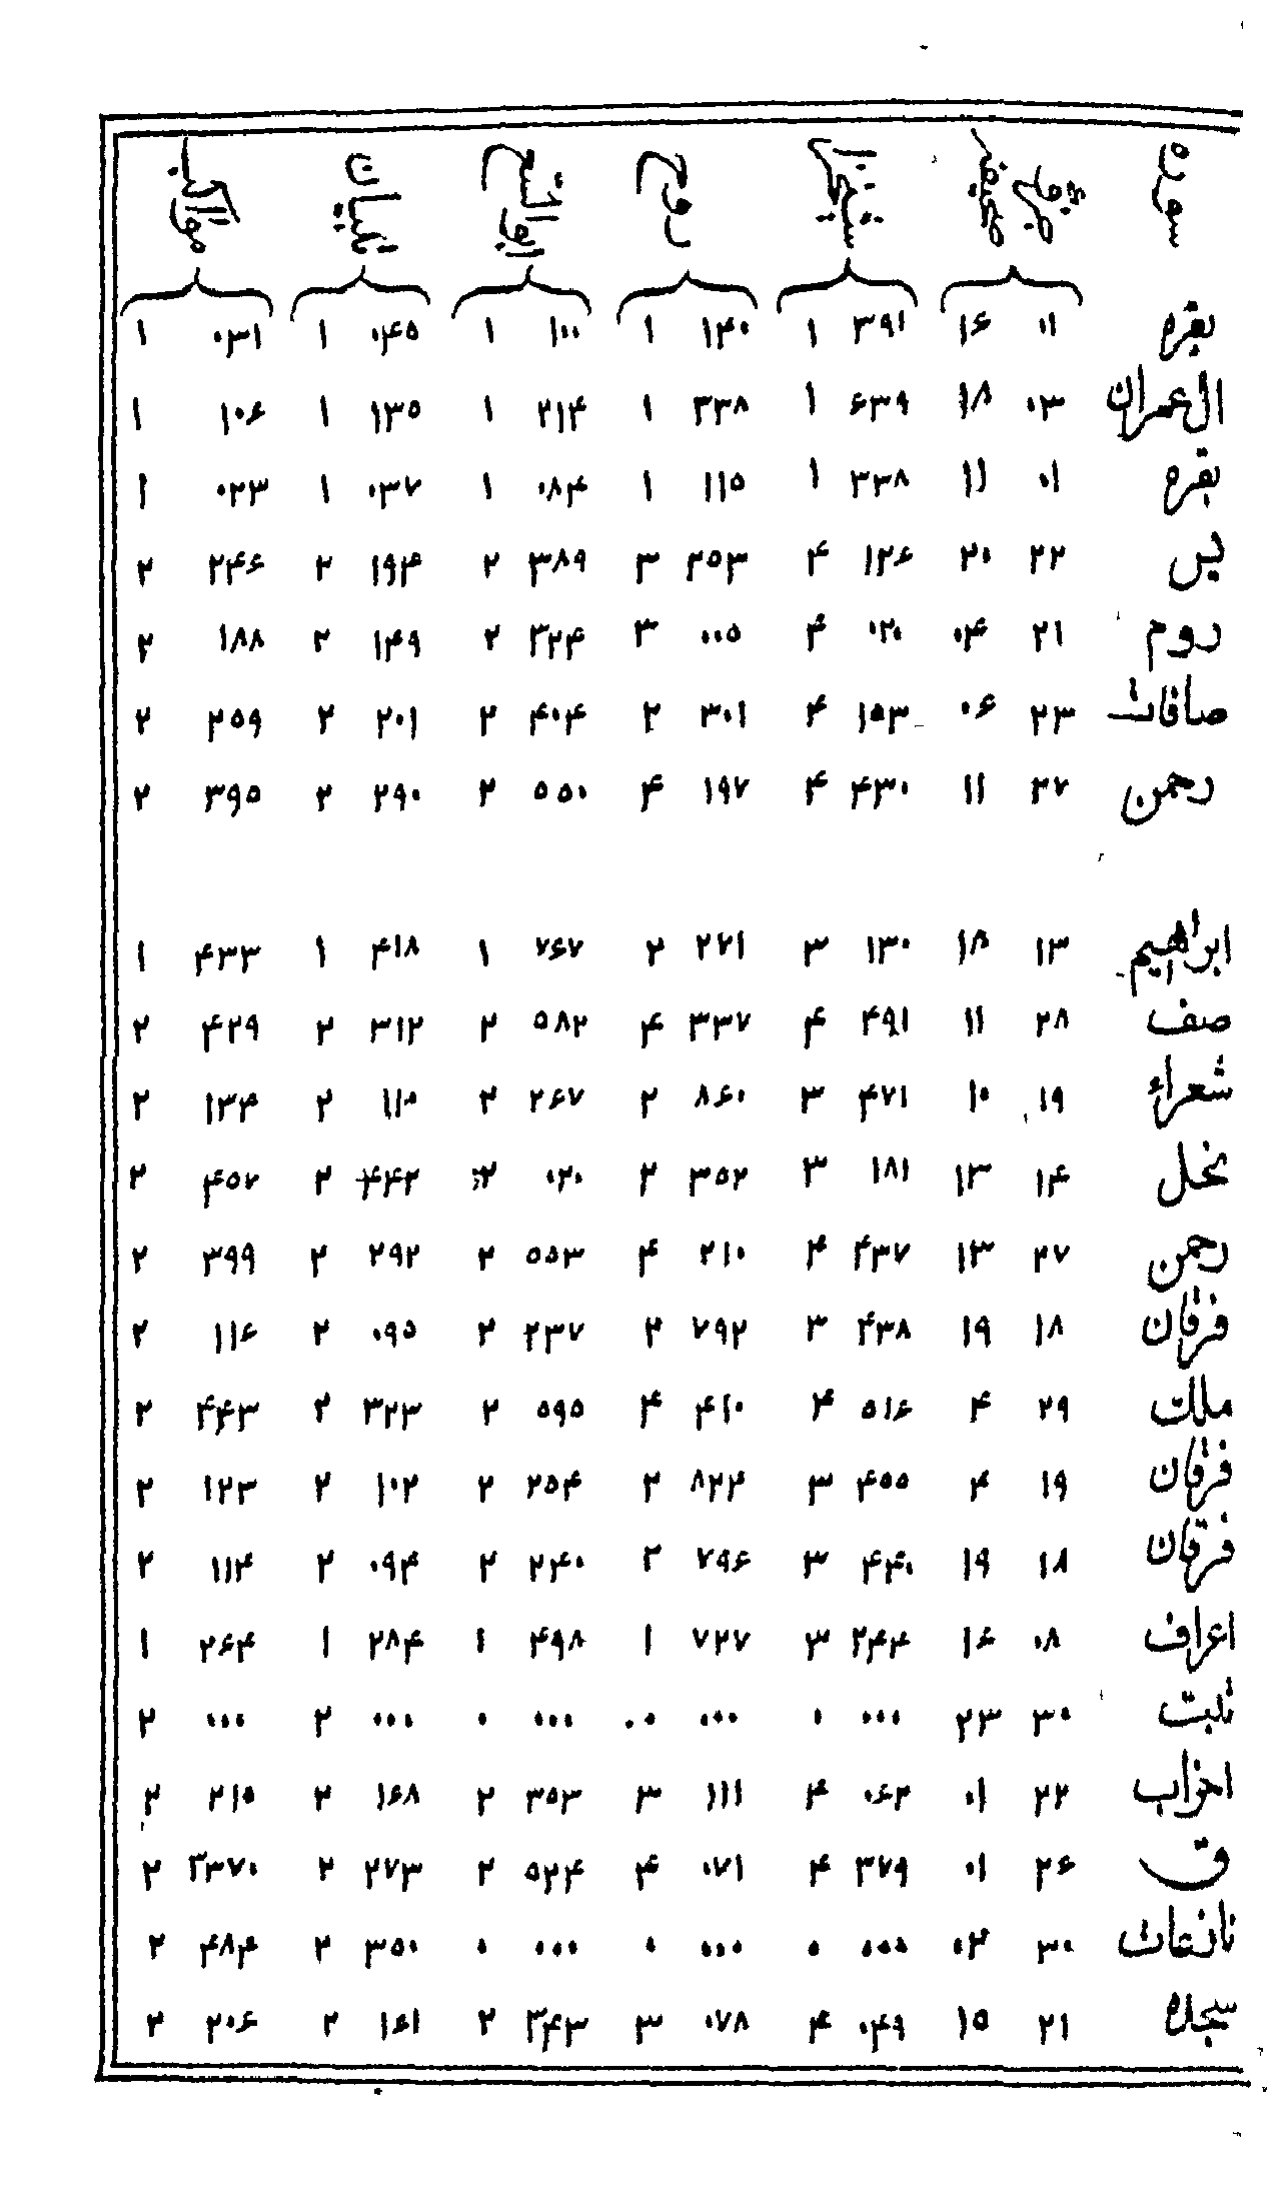 سوره جزؤ صحیفه شیخزاده روح ابو السعود تبیان مواکب
بقره ۰۱ ۱۶ ۳۹۱ ۱ ۱۴۰ ۱ ۱۰۰ ۱ ۰۴۵ ۱ ۰۳۱ ۱
ال عمران ۰۳ ۱۸ ۶۳۹ ۱ ۳۳۸ ۱ ۲۱۴ ۱ ۱۳۵ ۱ ۱۰۶ ۱
بقره ۰۱ ۱۱ ۳۳۸ ۱ ۱۱۵ ۱ ۰۸۴ ۱ ۰۳۷ ۱ ۰۲۳ ۱
یس ۲۲ ۲۰ ۱۲۶ ۴ ۲۵۳ ۳ ۳۸۹ ۲ ۱۹۴ ۲ ۲۴۶ ۲
روم ۲۱ ۰۴ ۰۲۰ ۴ ۰۰۵ ۳ ۳۲۴ ۲ ۱۴۹ ۲ ۱۸۸ ۲
صافات ۲۳ ۰۶ ۱۵۳ ۴ ۳۰۱ ۲ ۴۰۴ ۲ ۲۰۱ ۲ ۲۵۹ ۲
رحمن ۲۷ ۱۱ ۴۳۰ ۴ ۱۹۷ ۴ ۵۵۰ ۲ ۲۹۰ ۲ ۳۹۵ ۲
ابراهیم ۱۳ ۱۸ ۱۳۰ ۳ ۲۷۱ ۲ ۷۶۷ ۱ ۴۱۸ ۱ ۴۳۳ ۱
صف ۲۸ ۱۱ ۴۹۱ ۴ ۳۳۷ ۴ ۵۸۲ ۲ ۳۱۲ ۲ ۴۲۹ ۲
شعراء ۱۹ ۱۰ ۴۷۱ ۳ ۸۶۰ ۲ ۲۶۷ ۲ ۱۱۰ ۲ ۱۳۴ ۲
نحل ۱۴ ۱۳ ۱۸۱ ۳ ۳۵۲ ۲ ۰۲۰ ۲ ۴۴۲ ۲ ۴۵۷ ۲
رحمن ۲۷ ۱۳ ۴۳۷ ۴ ۲۱۰ ۴ ۵۵۳ ۲ ۲۹۲ ۲ ۳۹۹ ۲
فرقان ۱۸ ۱۹ ۴۳۸ ۳ ۷۹۲ ۲ ۲۳۷ ۲ ۰۹۵ ۲ ۱۱۶ ۲
ملك ۲۹ ۴ ۵۱۶ ۴ ۴۱۰ ۴ ۵۹۵ ۲ ۳۲۳ ۲ ۴۴۳ ۲
فرقان ۱۹ ۴ ۴۵۵ ۳ ۸۲۴ ۲ ۲۵۴ ۲ ۱۰۲ ۲ ۱۲۳ ۲
فرقان ۱۸ ۱۹ ۴۴۰ ۳ ۷۹۶ ۲ ۲۴۰ ۲ ۰۹۴ ۲ ۱۱۴ ۲
اعراف ۰۸ ۱۶ ۲۴۴ ۳ ۷۲۷ ۱ ۴۹۸ ۱ ۲۸۴ ۱ ۲۶۴ ۱
تبت ۳۰ ۲۳ ۰۰۰ ۰ ۰۰۰ ۰۰ ۰۰۰ ۰ ۰۰۰ ۲ ۰۰۰ ۲
احزاب ۲۲ ۰۱ ۰۶۲ ۴ ۱۱۱ ۳ ۳۵۳ ۲ ۱۶۸ ۲ ۲۱۵ ۲
ق ۲۶ ۰۱ ۳۷۹ ۴ ۰۷۱ ۴ ۵۲۴ ۲ ۲۷۳ ۲ ۳۳۷۰ ۲
نازعات ۳۰ ۰۲ ۰۰۰ ۰ ۰۰۰ ۰ ۰۰۰ ۰ ۳۵۰ ۲ ۴۸۴ ۲
سجده ۲۱ ۱۵ ۰۴۹ ۴ ۰۷۸ ۳ ۳۴۳ ۲ ۱۶۱ ۲ ۲۰۶ ۲